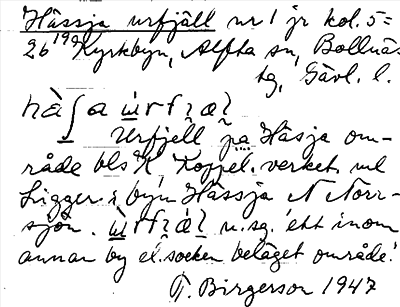 Hässja urfjäll nr 1 jr kol. 5=
26 199 Kyrkbyn, Alfta sn, Bollnäs
tg, Gävl. l.
hà∫a
Urfjell på Häsja om-
råde bls K Koppel. verket ml
Ligger i byn Hässja N Norr-
sjön. n. sg. 'ett inom
annan by el. socken beläget område.'
T. Birgerson 1947